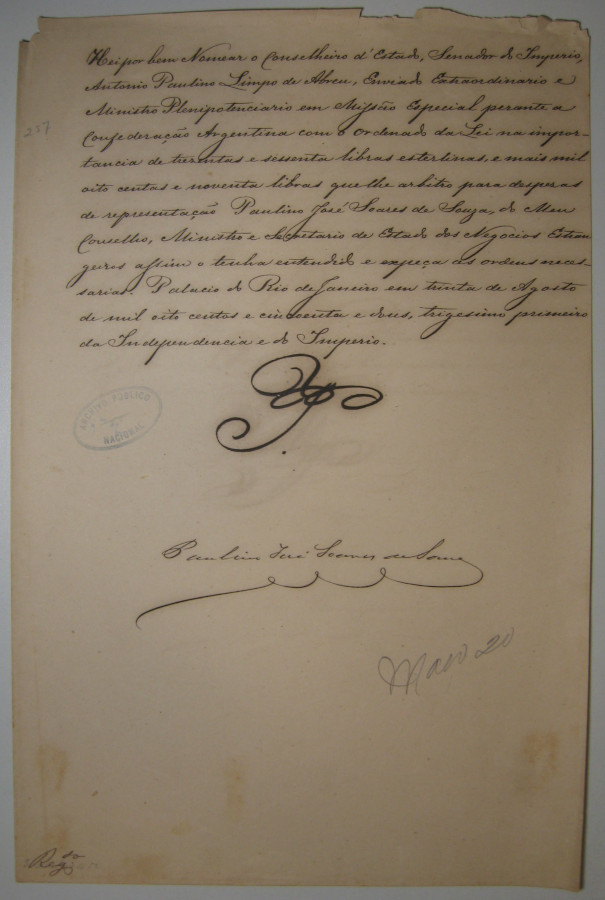 Hei por bem Nomear o Conselheiro d'Estado, Senador do Imperio,
Antonio Paulino Limpo de Abreu, Enviado Extraordinario e
Ministro Plenipotenciario em Missão Especial perante a
Confederação Argentina com o ordenado da Lei na impor-
tancia de trezentas e sessenta libras esterlinas, e mais mil
oito centas e noventa libras que lhe arbitro para despezas
de representação Paulino José Soares de Souza, do Meu
Conselho, Ministro e Secretario de Estado dos Negocios Estran
geiros assim o tenha entendido e expeça as ordens neces-
sarias. Palacio do Rio de Janeiro em trinta de Agosto
de mil oito centos e cincoenta e dous, trigesimo primeiro
da Independencia e do Imperio.
237
ARCHIVO PUBLICO
NACIONAL
Paulino José Soares de Souza
Maço 20
Reg.do